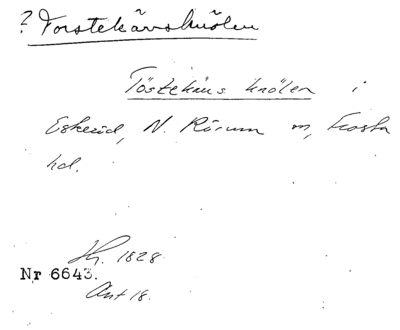 ? Torstekärrsknölen
Töstekärs knölen i
Eskeröd, N. Rörum sn, Frosta
hd.
Hr. 1828
Nr 6643.
Ant 18.